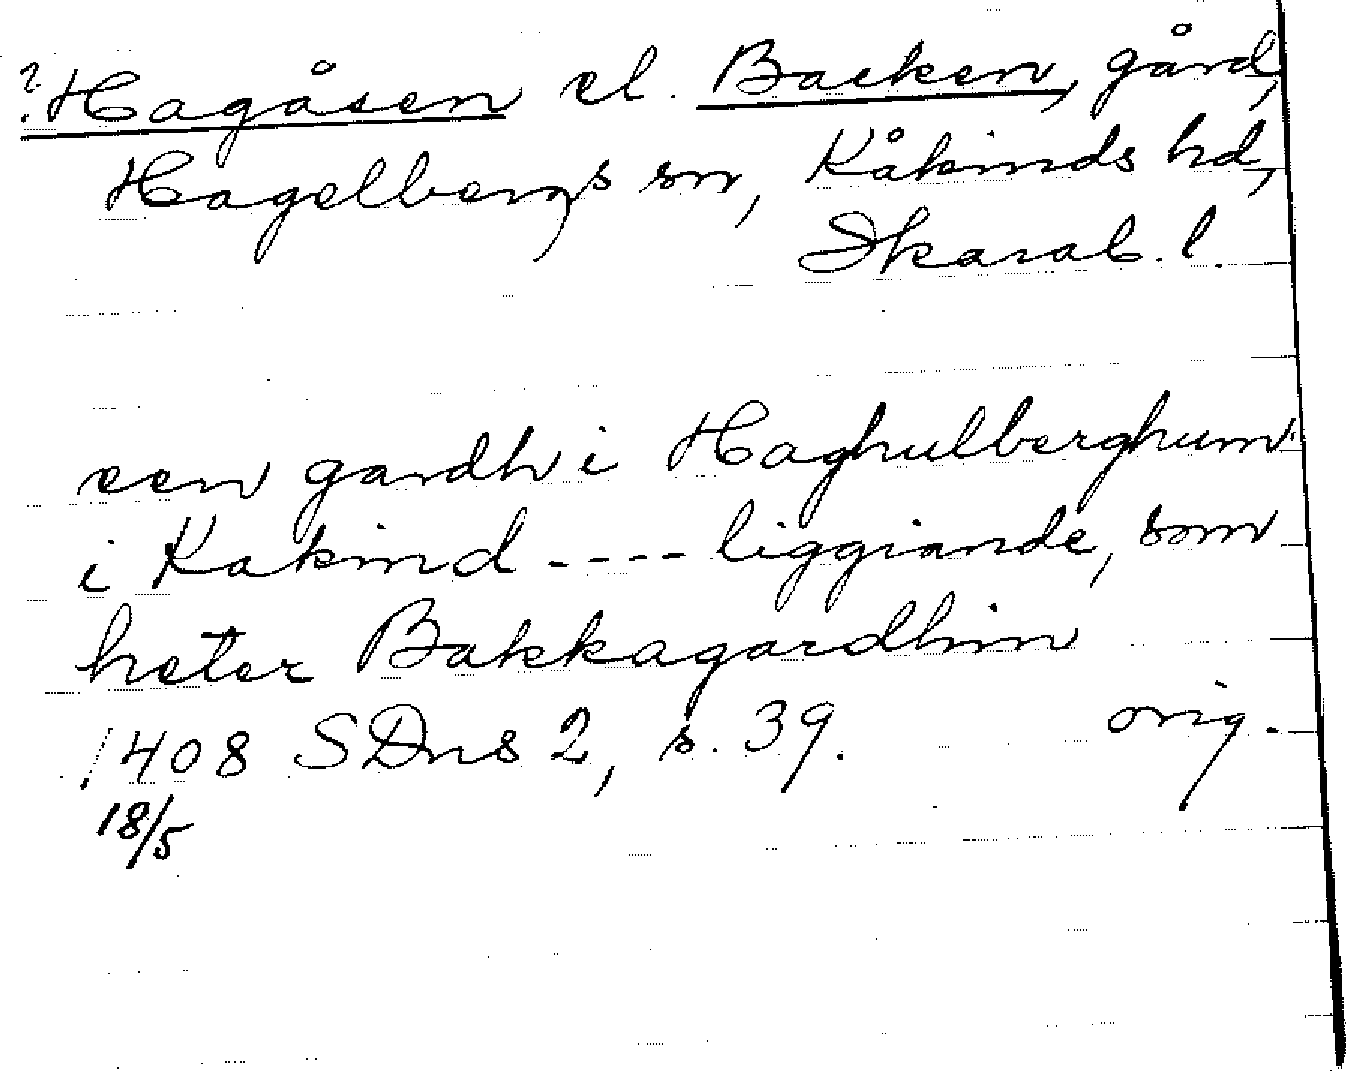 ? Hagåsen el. Backen, gård,
Hagelbergs sn, Kåkinds hd,
Skarab. l.
een gardh i Haghulberghum
i Kakind ---- liggiande, som
heter Bakkagardhin
1408 SDns 2, s. 39. orig.
18/5